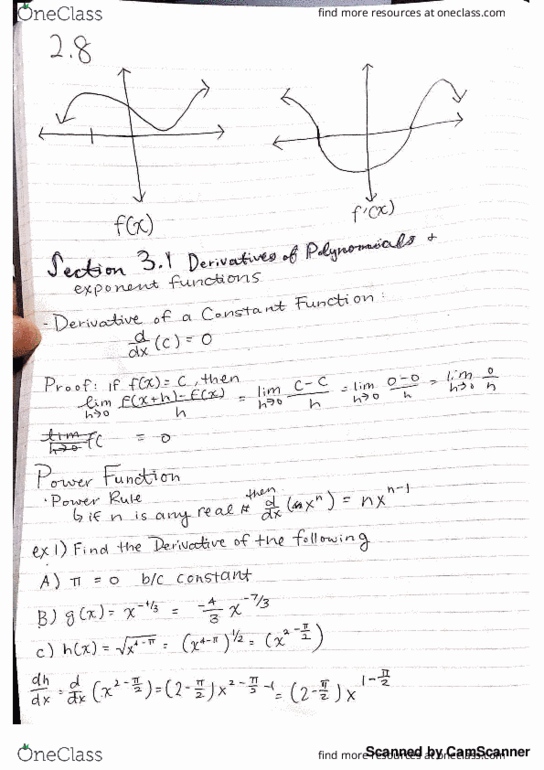 OneClass
find more resources at oneclass.com
2.8
f(x)
f'(x)
Section 3.1 Derivatives of Polynomials +
exponent functions
- Derivative of a Constant Function:
d/dx (c) = 0
Proof: if f(x) = c, then
lim h→0 f(x+h)-f(x)/h = lim h→0 c-c/h = lim h→0 0-0/h = lim h→0 0/h
= 0
Power Function
· Power Rule
↳ if n is any real # then d/dx (x^n) = nx^{n-1}
ex 1) Find the Derivative of the following
A) π = 0 b/c constant
B) g(x) = x^{-4/3} = -4/3 x^{-7/3}
c) h(x) = √x^{4-π} = (x^{4-π})^{1/2} = (x^{2-π/2})
dh/dx = d/dx (x^{2-π/2}) = (2-π/2) x^{2-π/2-1} = (2-π/2) x^{1-π/2}
OneClass
find more resources at oneclass.com
Scanned by CamScanner